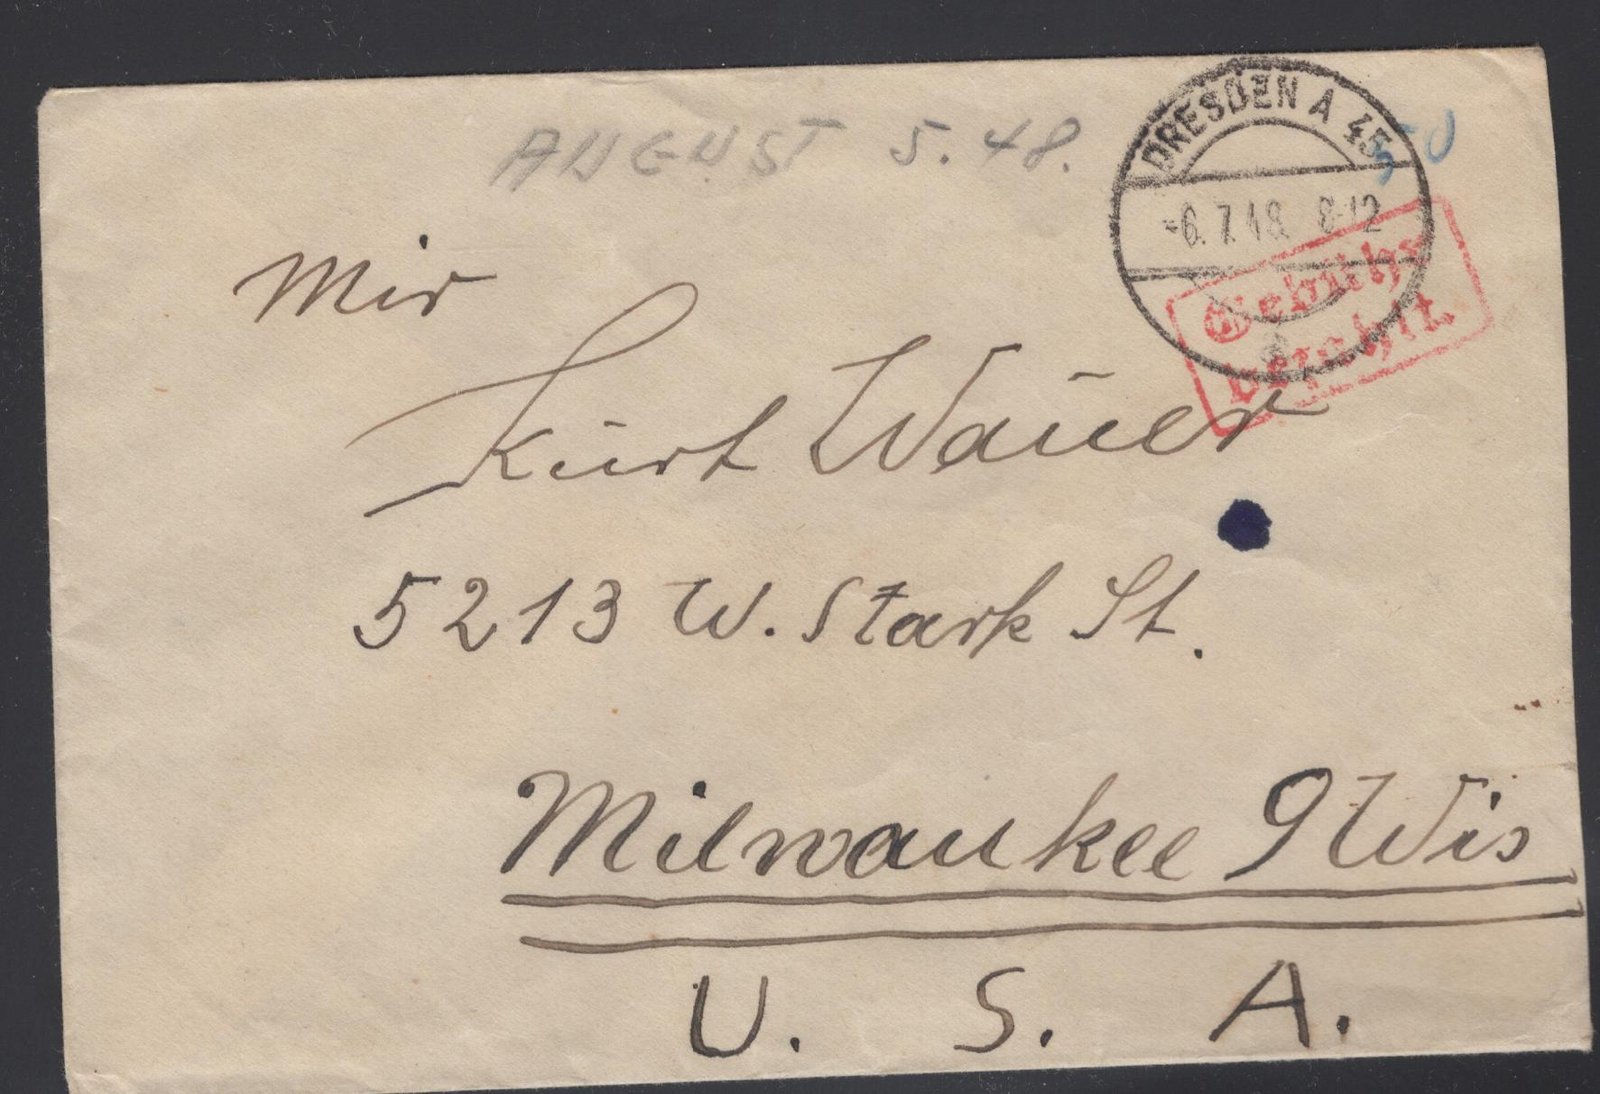 AUGUST 5. 48.
DRESDEN A 45
-6. 7. 48. 8-12
Gebühr
bezahlt.
Mir
Kurt Wauer
5213 W. Stark St.
Milwaukee 9 Wis
U. S. A.